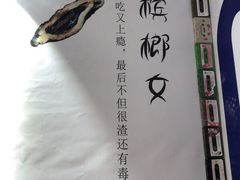 槟榔女
吃又上瘾，最后不但很渣还有毒